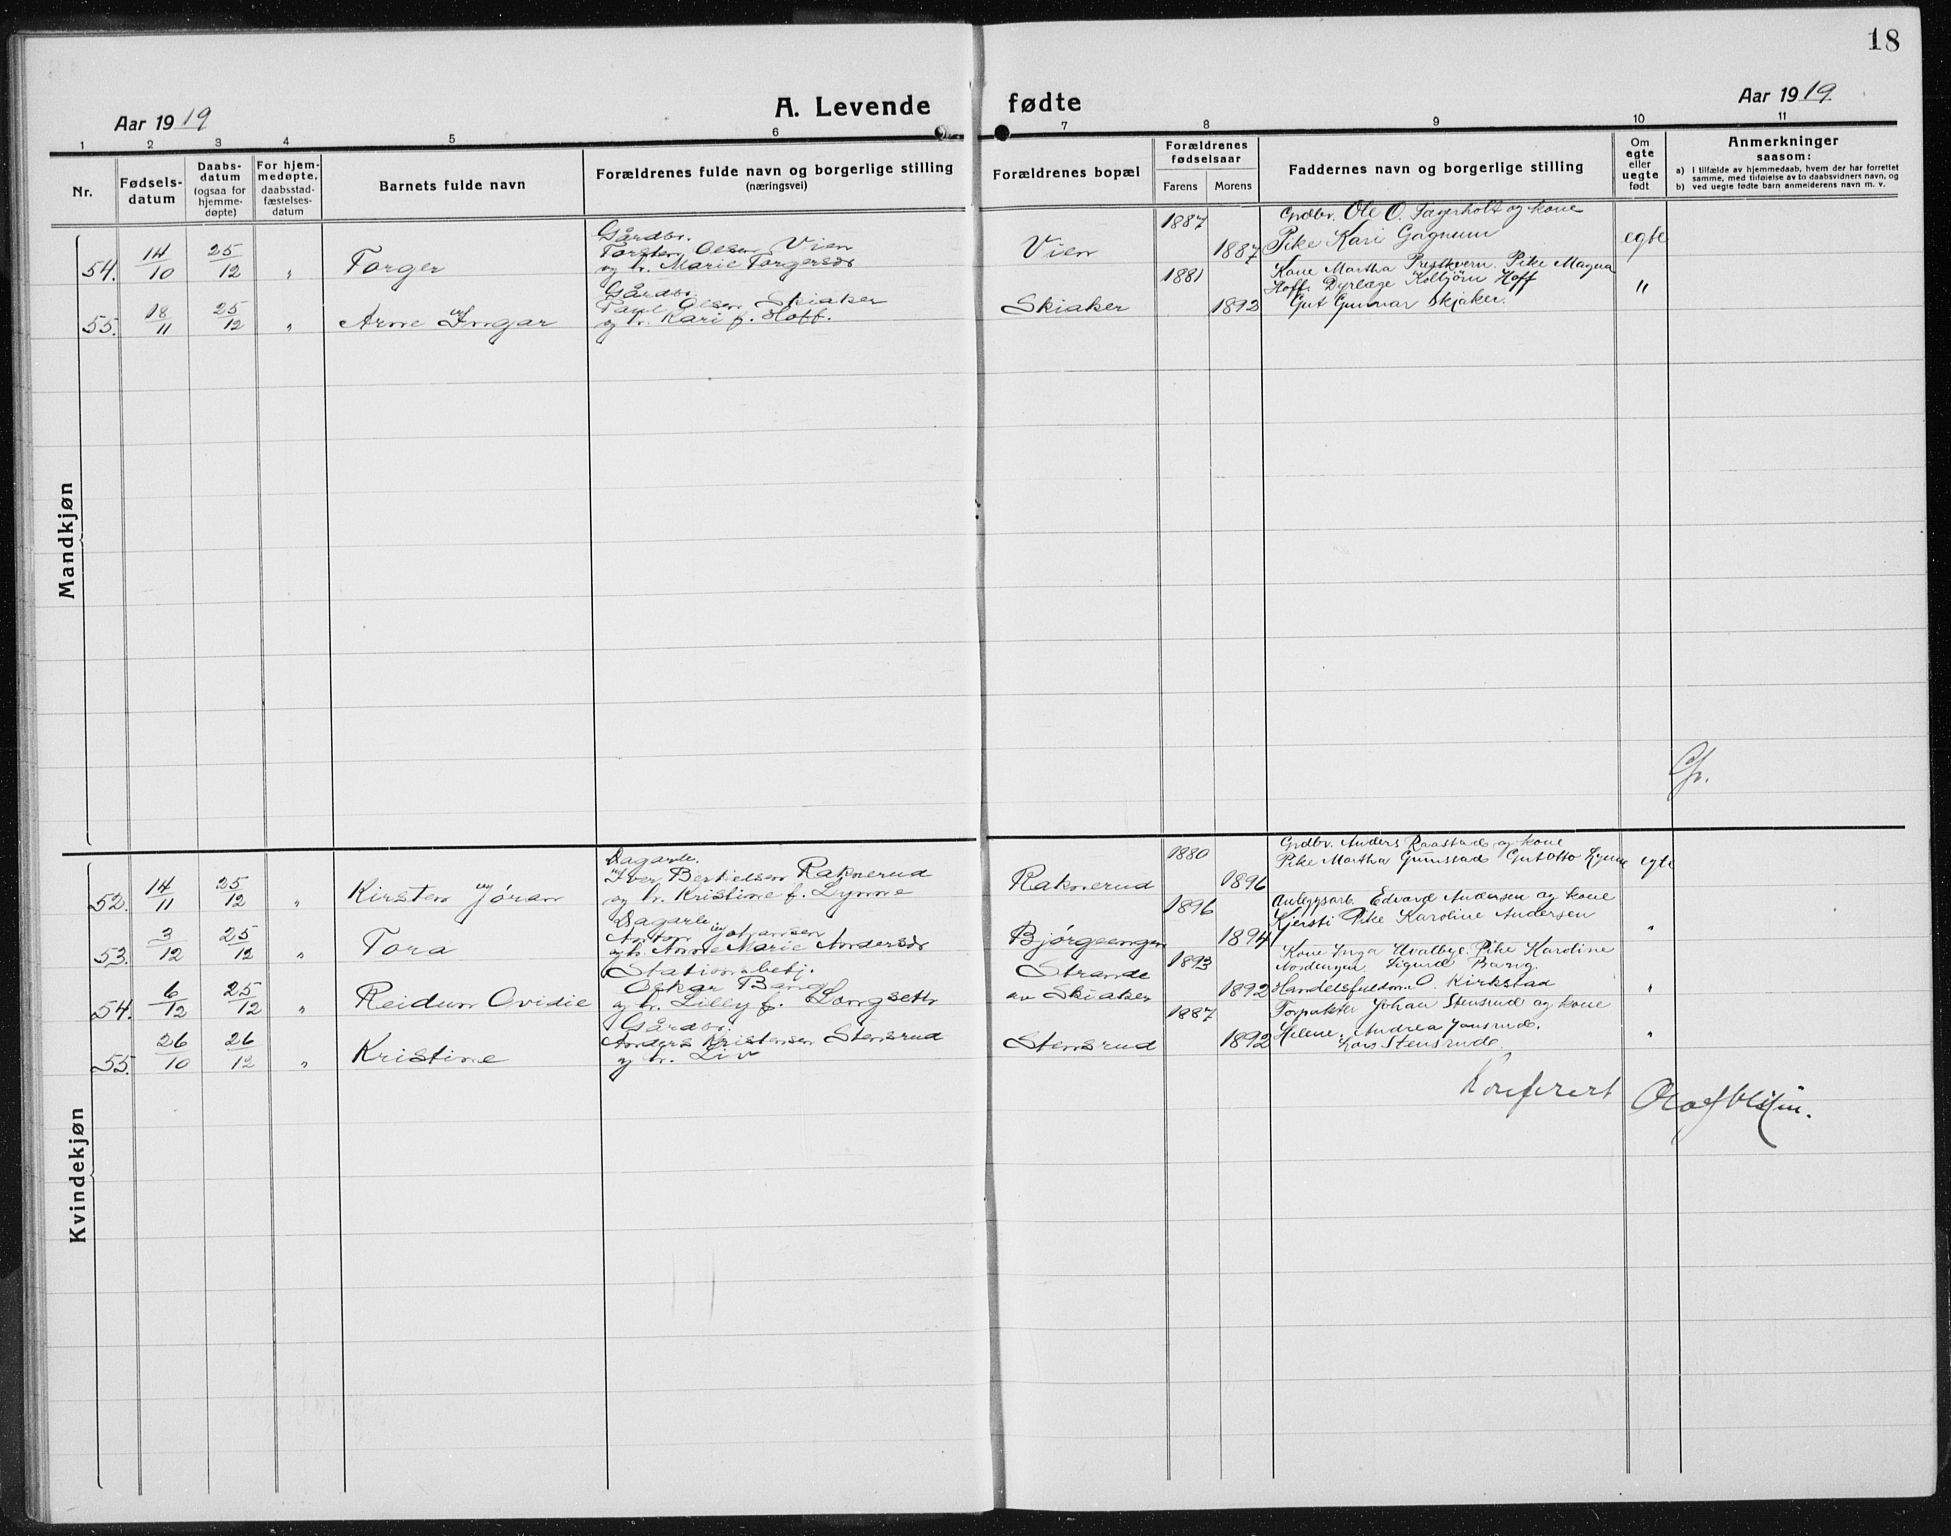 18
Aar 1919
A. Levende fødte
Aar 1919
1 2 3 4 5 6 7 8 9 10 11
Nr.
Fødsels-
datum
Daabs-
datum
(ogsaa for
hjemme-
døpte)
For hjem-
medøpte,
daabsstad-
fæstelses-
datum
Barnets fulde navn
Forældrenes fulde navn og borgerlige stilling
(næringsvei)
Forældrenes bopæl
Forældrenes
fødselsaar
Farens Morens
Faddernes navn og borgerlige stilling
Om
egte
eller
uegte
født
Anmerkninger
saasom:
a) I tilfælde av hjemmedaab, hvem der har forrettet
samme, med tilføielse av to daabsvidners navn, og
b) ved uegte fødte barn anmelderens navn m. v.
Mandkjøn
54. 14/10 25/12 " Torger
Gårdbr.
Torsten Olsen Vien
og h. Marie Torgersdr
Vien 1887 1887
Grdbr. Ole O. Fagerholt og kone
Pike Kari Gagnum
egte
55. 18/11 25/12 " Arne Ingar
Gårdbr.
Paul Olsen Skiaker
og h. Kari f. Hoff.
Skiaker 1881 1893
Kone Martha Prestkvern. Pike Magna
Hoff. Dyrlæge Kolbjörn Hoff
Gut Gunnar Skjaker.
"
Kvindekjøn
52. 14/11 25/12 " Kirsten Jóran
Dagarb.
Iver Bertelsen Raknerud
og h. Kristine f. Lynne
Raknerud 1880 1896
Grdbr. Anders Raastad og kone
Pike Martha Grimstad Gut Otto Lynne
egte
53. 3/12 25/12 " Tora
Dagarb.
Anton Johansen
og h. Anne Marie Andersdr
Bjørgeengen 1896 1894
Anleggsarb. Edvard Andersen og kone
Kjersti Pike Karoline Andersen
"
54. 6/12 25/12 " Reidun Ovidie
Stationsbetj.
Oskar Bang
og h. Lilly f. Longseth
Strande
av Skiaker 1893 1892
Kone Inga Hvalbye. Pike Karoline
Nordengen. Sigurd Bang.
Handelsfuldm. O. Kirkstad
"
55. 26/10 26/12 " Kristine
Gårdbr.
Anders Kristensen Stensrud
og h. Liv
Stensrud 1887 1892
Forpakter Johan Stensrud og kone
Helene, Andrea Jonsrud.
Lars Stensrud.
"
Konferert